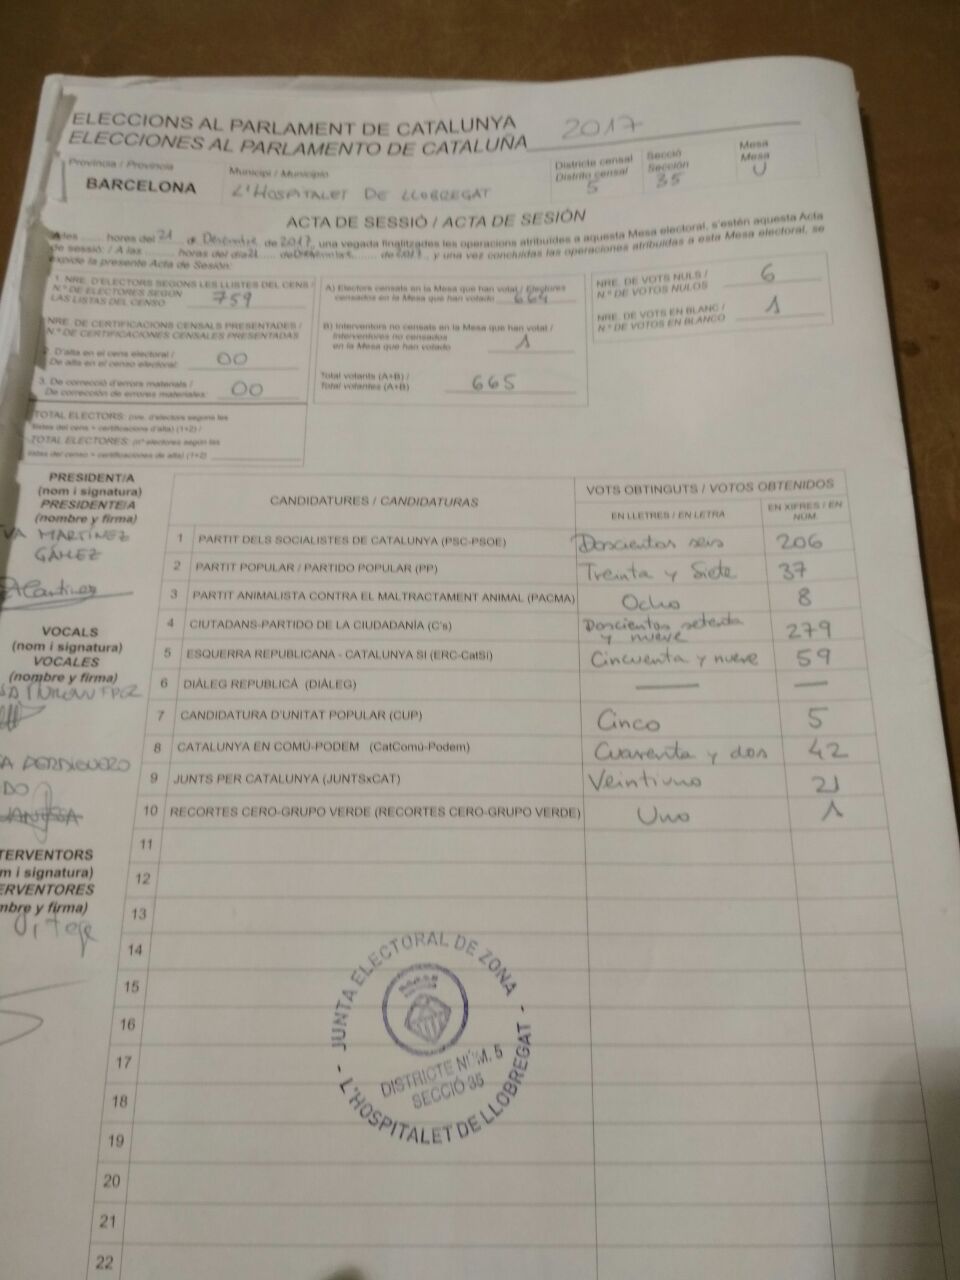 ELECCIONS AL PARLAMENT DE CATALUNYA
ELECCIONES AL PARLAMENTO DE CATALUÑA 2017
Província / Provincia
BARCELONA
Municipi / Municipio
L'HOSPITALET DE LLOBREGAT
Districte censal
Distrito censal
5
Secció
Sección
35
Mesa
Mesa
U
ACTA DE SESSIÓ / ACTA DE SESIÓN
hores del 21 d Desembre de 2017, una vegada finalitzades les operacions atribuïdes a aquesta Mesa electoral, s'estén aquesta Acta
de sessió: / A las ........ horas del día 21 de de 2017, y una vez concluidas las operaciones atribuidas a esta Mesa electoral, se
expide la presente Acta de Sesión:
1. NRE. D'ELECTORS SEGONS LES LLISTES DEL CENS /
N.º DE ELECTORES SEGÚN
LAS LISTAS DEL CENSO 759
NRE. DE CERTIFICACIONS CENSALS PRESENTADES /
N.º DE CERTIFICACIONES CENSALES PRESENTADAS
2. D'alta en el cens electoral /
De alta en el censo electoral: 00
3. De correcció d'errors materials /
De corrección de errores materiales: 00
TOTAL ELECTORS: (nre. d'electors segons les
llistes del cens + certificacions d'alta) (1+2) /
TOTAL ELECTORES: (nº electores según las
listas del censo + certificaciones de alta) (1+2)
A) Electors censats en la Mesa que han votat / Electores
censados en la Mesa que han votado 664
B) Interventors no censats en la Mesa que han votat /
Interventores no censados
en la Mesa que han votado 1
Total votants (A+B) /
Total votantes (A+B) 665
NRE. DE VOTS NULS /
N.º DE VOTOS NULOS 6
NRE. DE VOTS EN BLANC /
N.º DE VOTOS EN BLANCO 1
PRESIDENT/A
(nom i signatura)
PRESIDENTE/A
(nombre y firma)
VA MARTÍNEZ
GÁMEZ
VOCALS
(nom i signatura)
VOCALES
(nombre y firma)
A PERDIGUERO
DO
TERVENTORS
m i signatura)
ERVENTORES
mbre y firma)
CANDIDATURES / CANDIDATURAS
VOTS OBTINGUTS / VOTOS OBTENIDOS
EN LLETRES / EN LETRA
EN XIFRES / EN NÚM.
1 PARTIT DELS SOCIALISTES DE CATALUNYA (PSC-PSOE) Doscientos seis 206
2 PARTIT POPULAR / PARTIDO POPULAR (PP) Treinta y Siete 37
3 PARTIT ANIMALISTA CONTRA EL MALTRACTAMENT ANIMAL (PACMA) Ocho 8
4 CIUTADANS-PARTIDO DE LA CIUDADANÍA (C's) Doscientos setenta y nueve 279
5 ESQUERRA REPUBLICANA - CATALUNYA SÍ (ERC-CatSí) Cincuenta y nueve 59
6 DIÀLEG REPUBLICÀ (DIÀLEG) — —
7 CANDIDATURA D'UNITAT POPULAR (CUP) Cinco 5
8 CATALUNYA EN COMÚ-PODEM (CatComú-Podem) Cuarenta y dos 42
9 JUNTS PER CATALUNYA (JUNTSxCAT) Veintiuno 21
10 RECORTES CERO-GRUPO VERDE (RECORTES CERO-GRUPO VERDE) Uno 1
11
12
13
14
15
16
17
18
19
20
21
22
JUNTA ELECTORAL DE ZONA
DISTRICTE NÚM. 5
SECCIÓ 35
- L'HOSPITALET DE LLOBREGAT -